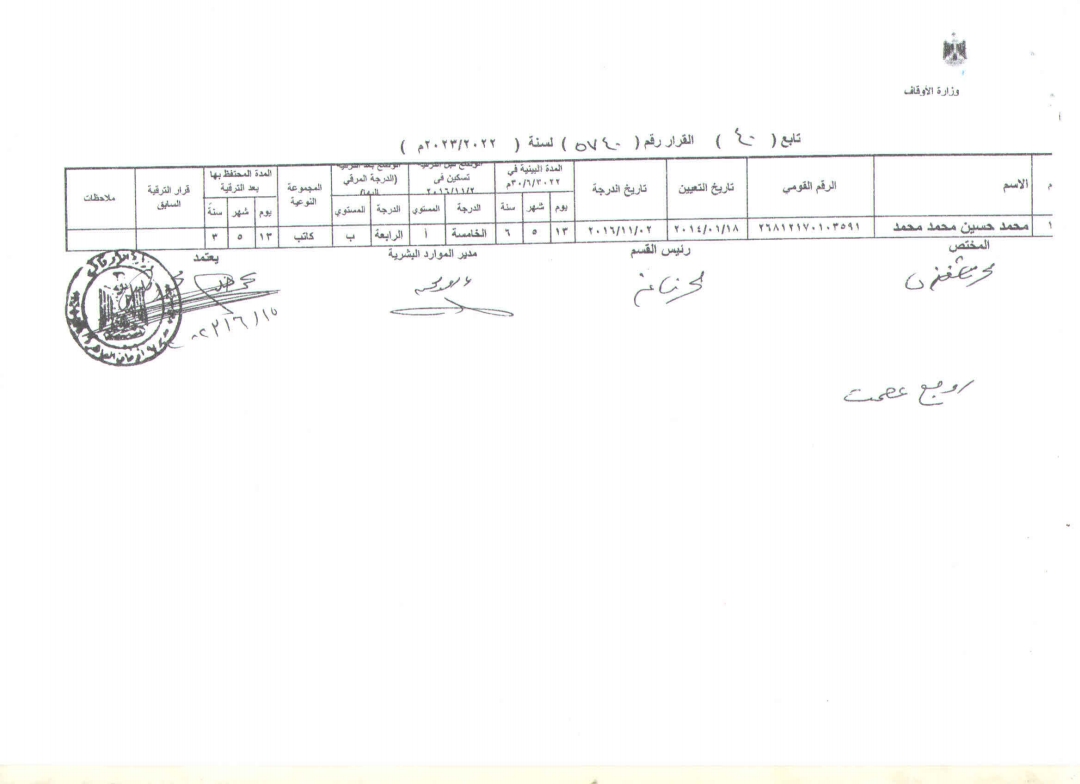 وزارة الأوقاف
تابع ( ٤٠ ) القرار رقم ( ٥٧٤٠ ) لسنة ( ٢٠٢٣/٢٠٢٢م )
م الاسم الرقم القومي تاريخ التعيين تاريخ الدرجة المدة البينية في ٢٠٢٢/٦/٣٠م تسكين فى ٢٠١٦/١١/٢ (الدرجة المرقي اليها) المجموعة النوعية المدة المحتفظ بها بعد الترقية قرار الترقية السابق ملاحظات
يوم شهر سنة الدرجة المستوي الدرجة المستوي يوم شهر سنة
١ محمد حسين محمد محمد ٢٦٨١٢١٧٠١٠٣٥٩١ ٢٠١٤/٠١/١٨ ٢٠١٦/١١/٠٢ ١٣ ٥ ٦ الخامسة أ الرابعة ب كاتب ١٣ ٥ ٣
المختص رئيس القسم مدير الموارد البشرية يعتمد
روجع عصمت